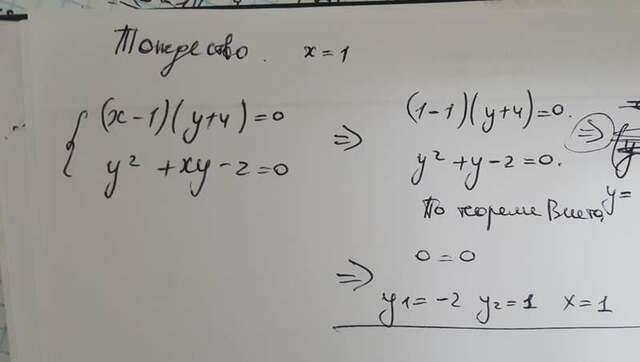 Тождество. x = 1
(x-1)(y+4)=0
y² + xy - 2 = 0
⇒
(1-1)(y+4)=0.
y² + y - 2 = 0.
⇒
y
y =
По теореме Виета,
⇒
0 = 0
y1 = -2 y2 = 1 x = 1